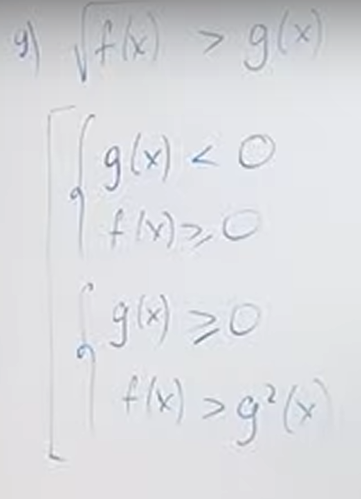 g) √f(x) > g(x)
g(x) < 0
f(x) ⩾ 0
g(x) ⩾ 0
f(x) > g²(x)